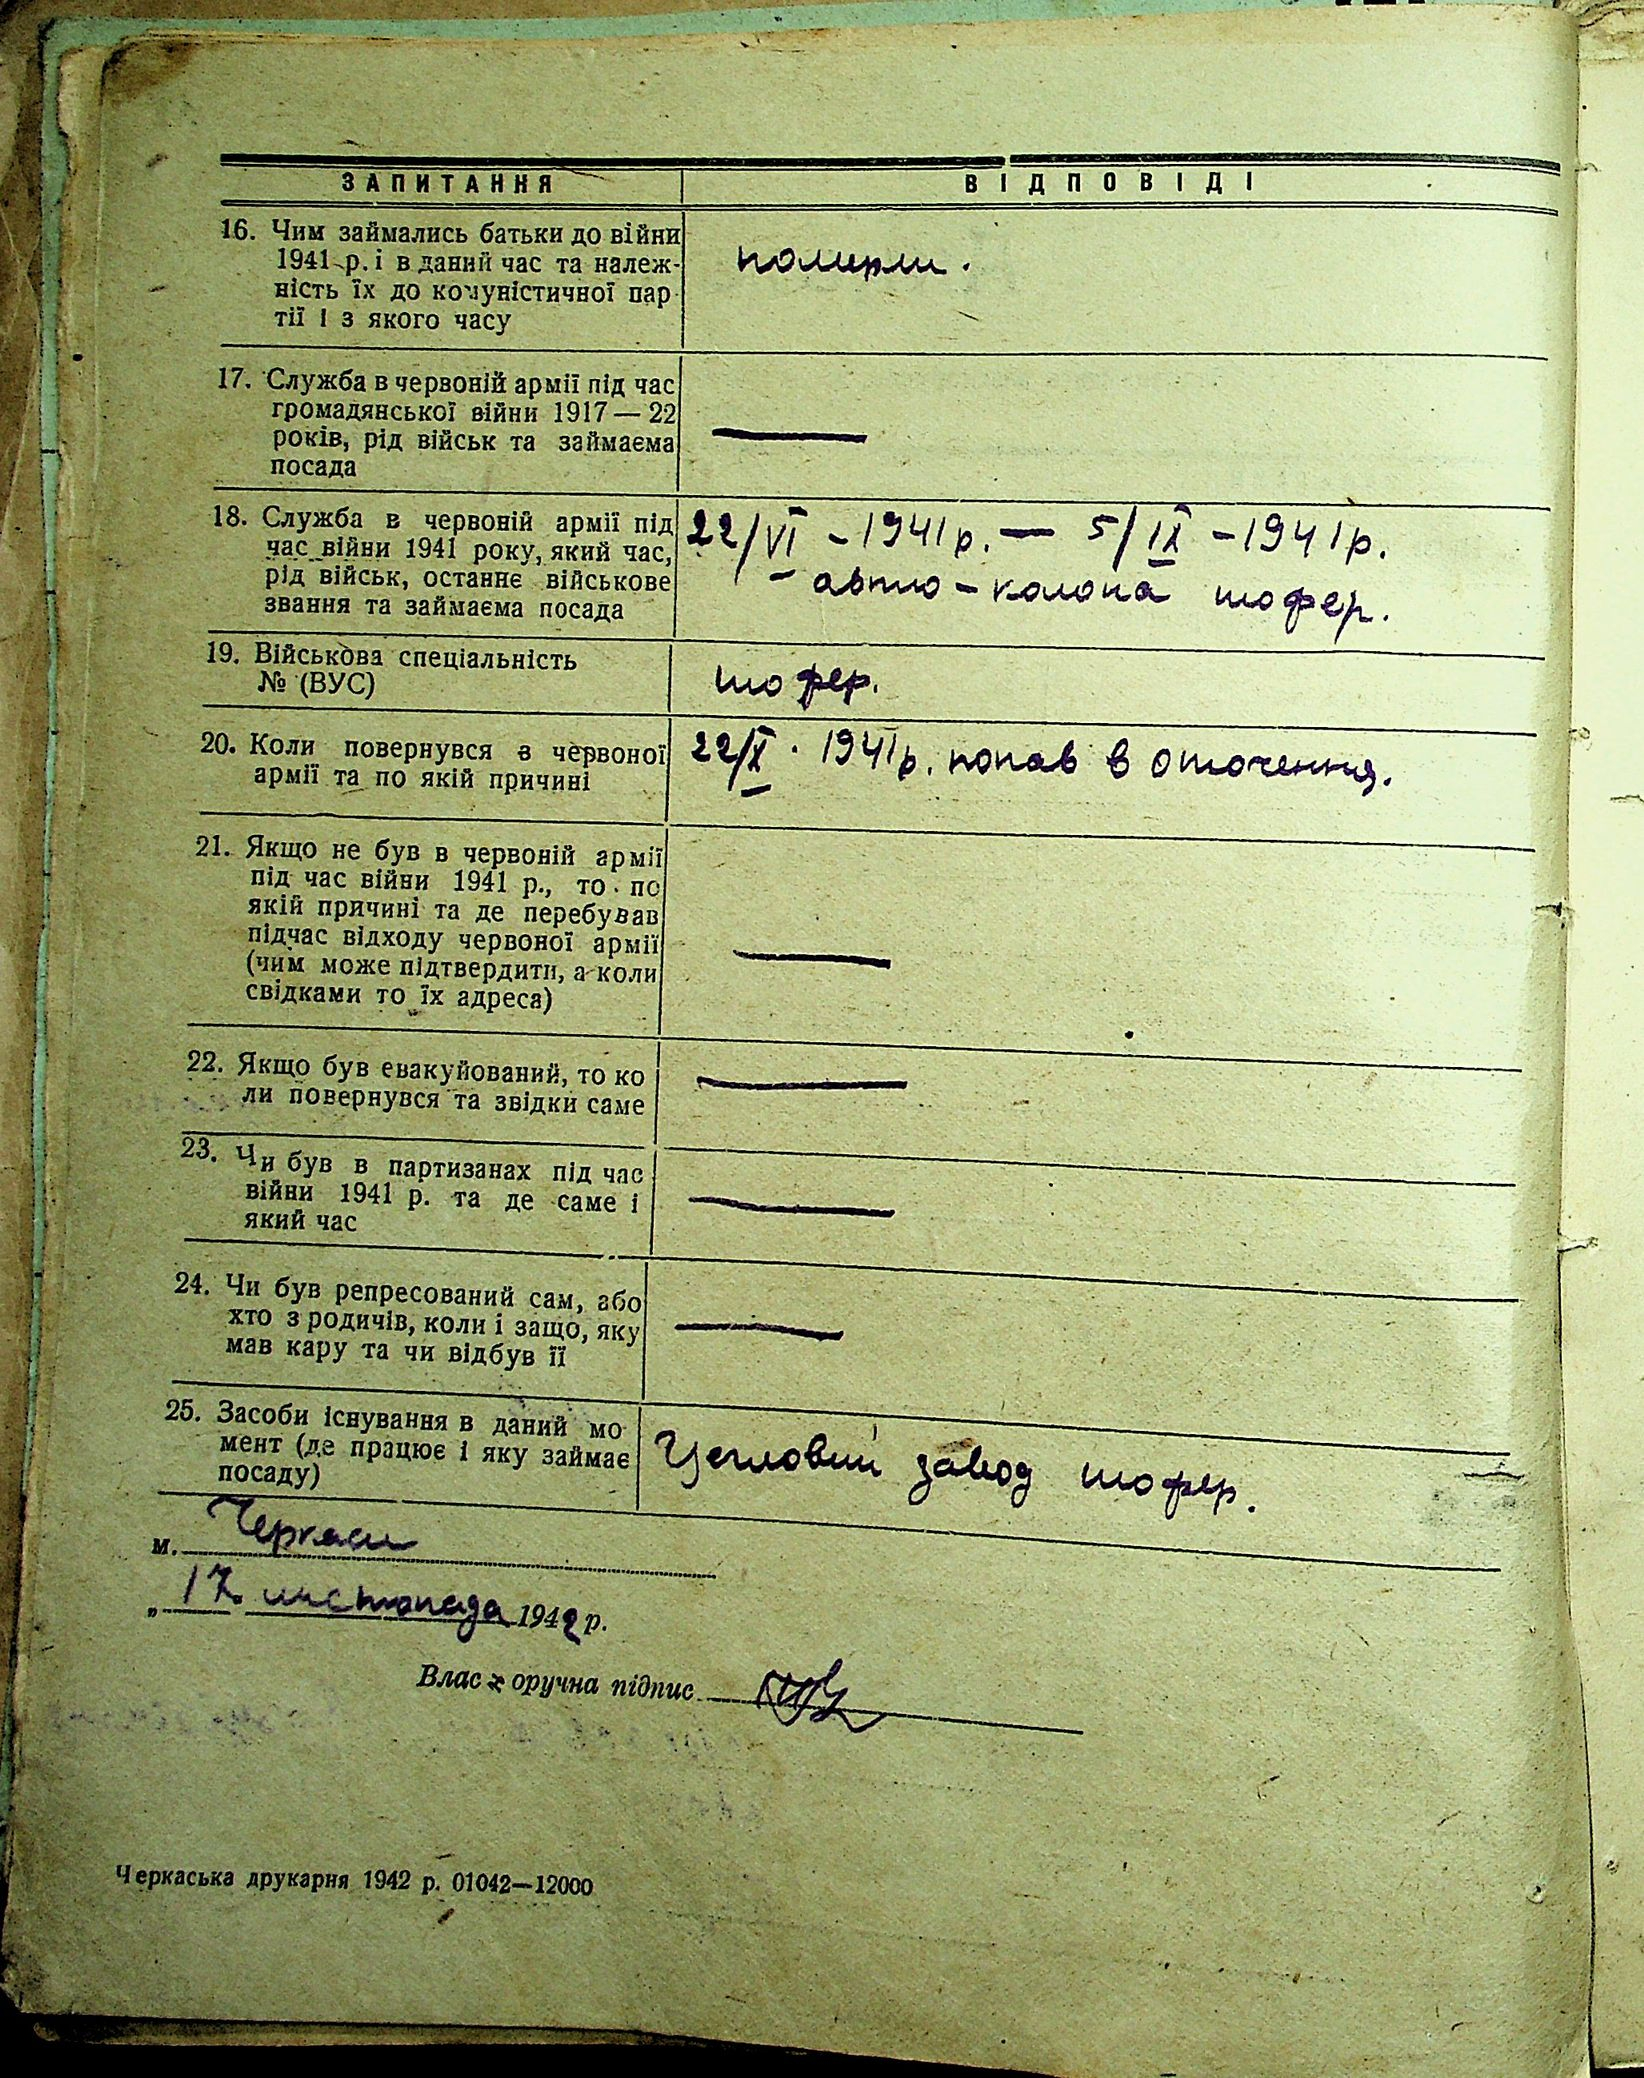 ЗАПИТАННЯ
ВІДПОВІДІ
16. Чим займались батьки до війни
1941 р. і в даний час та належ-
ність їх до комуністичної пар-
тії і з якого часу
померли.
17. Служба в червоній армії під час
громадянської війни 1917 — 22
років, рід військ та займаєма
посада
—
18. Служба в червоній армії під
час війни 1941 року, який час,
рід військ, останнє військове
звання та займаєма посада
22/VI - 1941 р. — 5/IX - 1941 р.
авто - колона шофер.
19. Військова спеціальність
№ (ВУС)
шофер.
20. Коли повернувся з червоної
армії та по якій причині
22/X. 1941 р. попав в оточення.
21. Якщо не був в червоній армії
під час війни 1941 р., то по
якій причині та де перебував
підчас відходу червоної армії
(чим може підтвердити, а коли
свідками то їх адреса)
—
22. Якщо був евакуйований, то ко
ли повернувся та звідки саме
—
23. Чи був в партизанах під час
війни 1941 р. та де саме і
який час
—
24. Чи був репресований сам, або
хто з родичів, коли і защо, яку
мав кару та чи відбув її
—
25. Засоби існування в даний мо-
мент (де працює і яку займає
посаду)
Цегловий завод шофер.
м. Черкаси
„ 17 листопада 1942 р.
Власноручна підпис
Черкаська друкарня 1942 р. 01042—12000